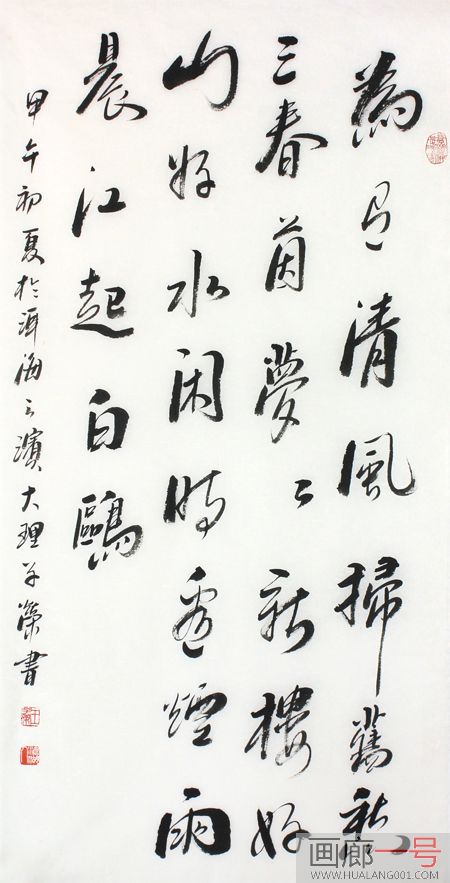 為清風掃舊
三春茵夢々新樓好
山好水闲時看煙雨
晨江起白鷗
甲午初夏於洱海之濱大理榮書
画廊一号
WWW.HUALANG001.COM